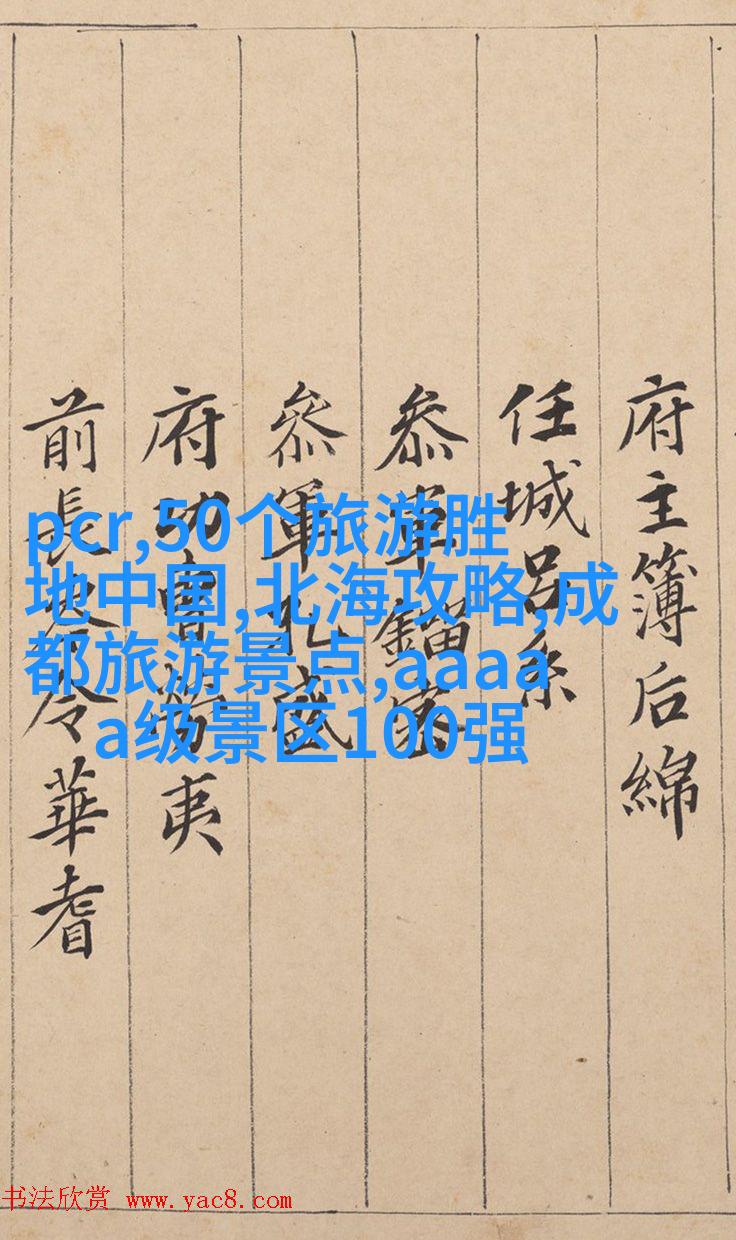 府主簿后綿
任城呂系
叅軍鎦密
叅軍孔盛
府功曹勞夷
前長岑令華耆
pcr,50个旅游胜
地中国,北海攻略,成
都旅游景点,aaaa
a级景区100强
书法欣赏 www.yac8.com